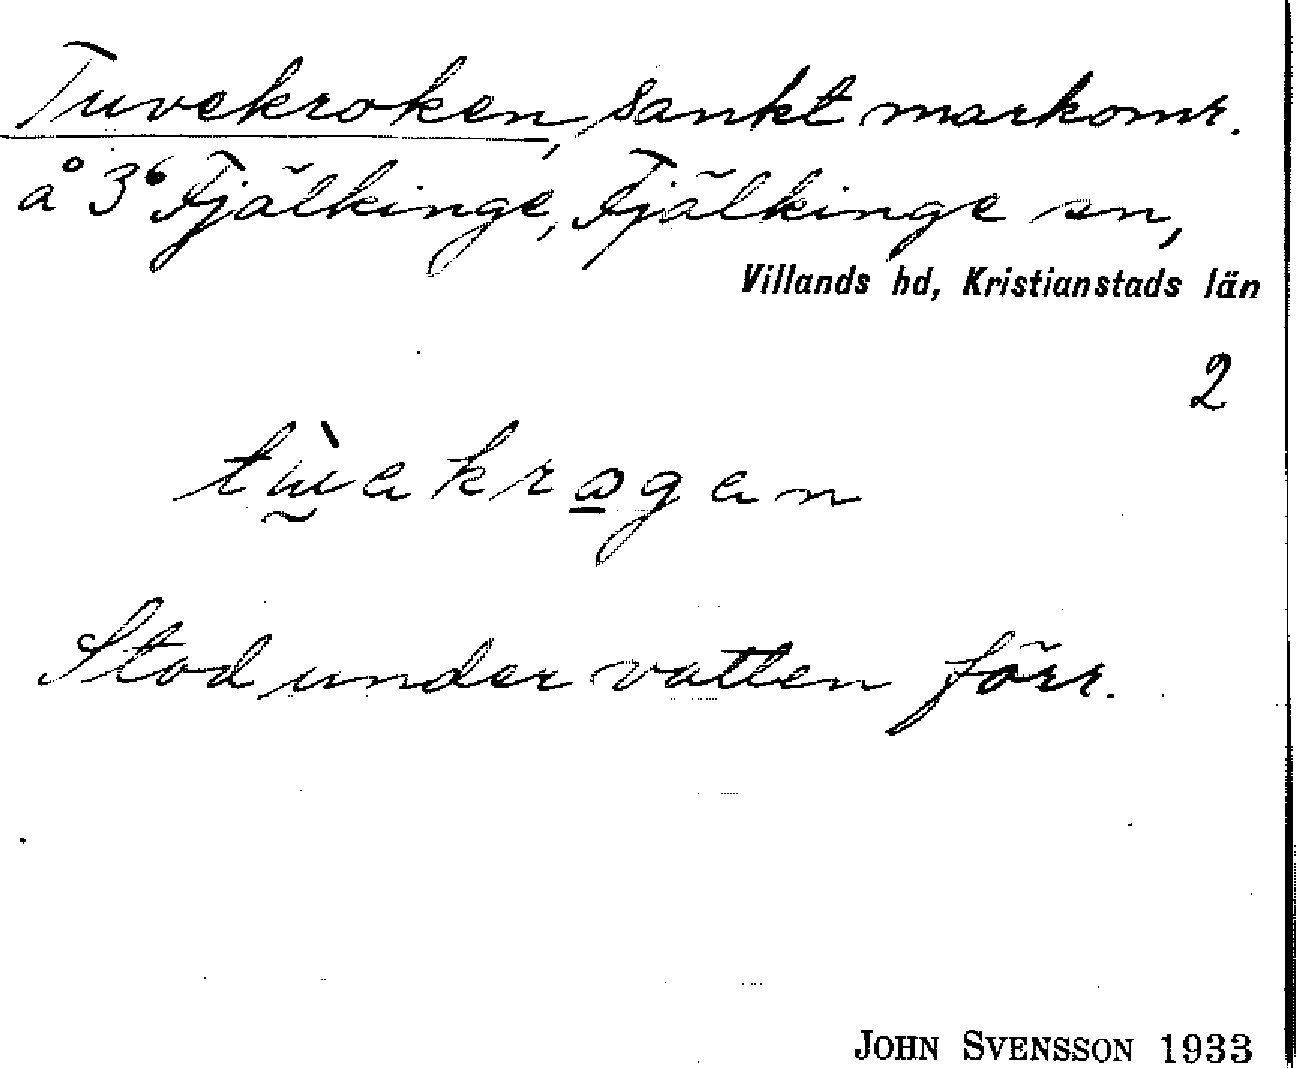 Tuvekroken, sankt markomr.
å 3⁶ Fjälkinge, Fjälkinge sn,
Villands hd, Kristianstads län
2
Stod under vatten förr.
JOHN SVENSSON 1933